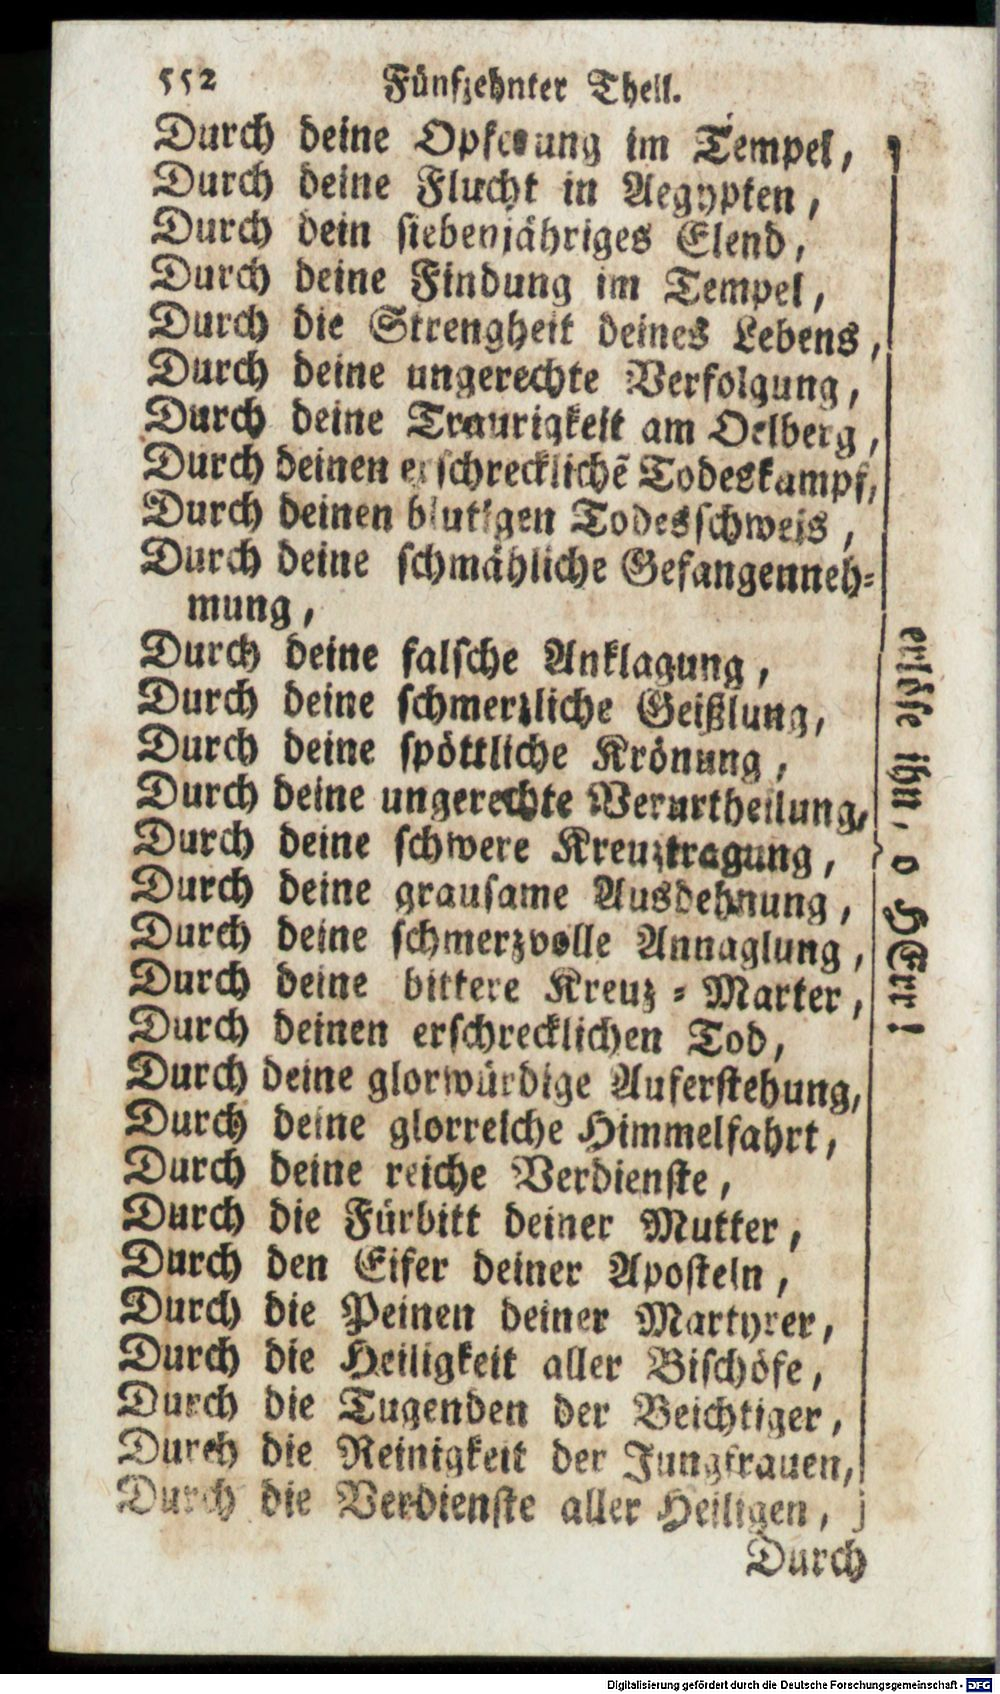 552 Fünfzehnter Theil.
Durch deine Opferung im Tempel,
Durch deine Flucht in Aegypten,
Durch dein siebenjähriges Elend,
Durch deine Findung im Tempel,
Durch die Strengheit deines Lebens,
Durch deine ungerechte Verfolgung,
Durch deine Traurigkeit am Oelberg,
Durch deinen erschrecklichẽ Todeskampf,
Durch deinen blutigen Todesschweis,
Durch deine schmähliche Gefangenneh-
mung,
Durch deine falsche Anklagung,
Durch deine schmerzliche Geißlung,
Durch deine spöttliche Krönung,
Durch deine ungerechte Verurtheilung,
Durch deine schwere Kreuztragung,
Durch deine grausame Ausdehnung,
Durch deine schmerzvolle Annaglung,
Durch deine bittere Kreuz-Marter,
Durch deinen erschrecklichen Tod,
Durch deine glorwürdige Auferstehung,
Durch deine glorreiche Himmelfahrt,
Durch deine reiche Verdienste,
Durch die Fürbitt deiner Mutter,
Durch den Eifer deiner Aposteln,
Durch die Peinen deiner Martyrer,
Durch die Heiligkeit aller Bischöfe,
Durch die Tugenden der Beichtiger,
Durch die Reinigkeit der Jungfrauen,
Durch die Verdienste aller Heiligen,
erlöse ihn, o HErr!
Durch
Digitalisierung gefördert durch die Deutsche Forschungsgemeinschaft - DFG